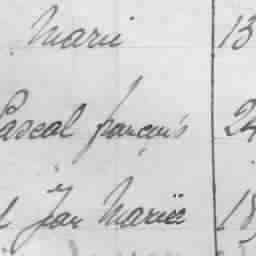 Marie 13
Pascal françois 24
Jean Marie 18